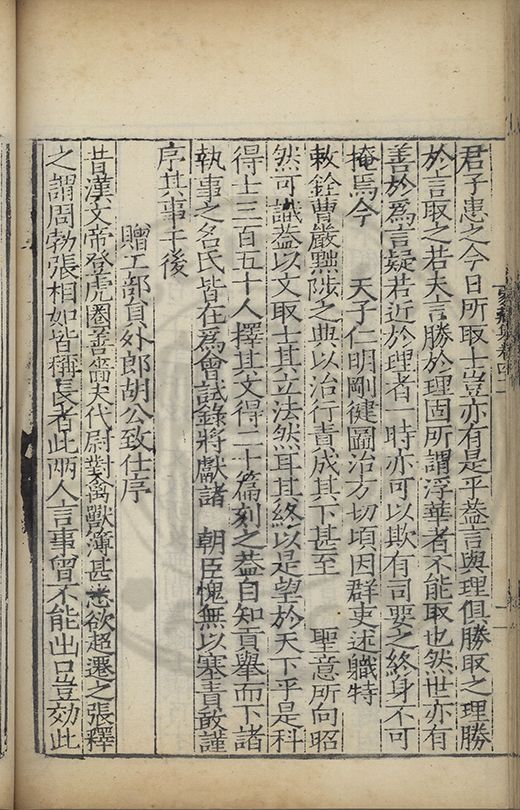 君子患之今日所取士豈亦有是乎蓋言與理俱勝取之理勝
於言取之若夫言勝於理固所謂浮華者不能取也然世亦有
善於為言疑若近於理者一時亦可以欺有司要之終身不可
掩焉今　天子仁明剛健圖治方切頃因群吏述職特
敕銓曹嚴黜陟之典以治行責成其下甚至　聖意所向昭
然可識蓋以文取士其立法然耳其終以是望於天下乎是科
得士三百五十人擇其文得二十篇刻之蓋自知貢舉而下諸
執事之名氏皆在為會試錄將獻諸　朝臣愧無以塞責敢謹
序其事于後
贈工部員外郎胡公致仕序
昔漢文帝登虎圈善嗇夫代尉對禽獸簿甚悉欲超遷之張釋
之謂周勃張相如皆稱長者此兩人言事曾不能出口豈效此